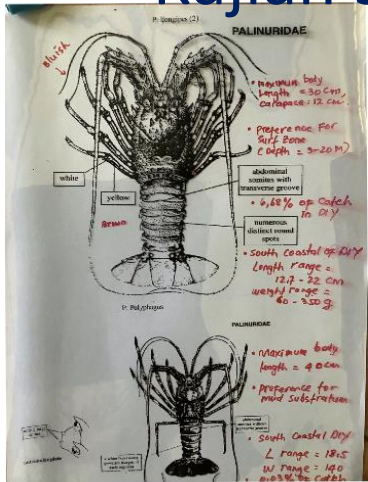 P. Longipes (2)
PALINURIDAE
Bluish
• maximum body
length = 30 cm
carapace: 12 cm
• preference For
Surf Zone
(Depth = 3-20 M)
white
yellow
Brown
abdominal
somites with
transverse groove
numerous
distinct round
spots
• 6,68% of Catch
in DIY
• South Coastal of DIY
Length range =
12.7 - 22 cm
weight range =
60 - 350 g
P. Polyphagus
PALINURIDAE
• Maximum body
length = 40 cm
• preference for
mud substratum
• South Coastal DIY
L range = 18.5
W range = 140
0.03% of Catch